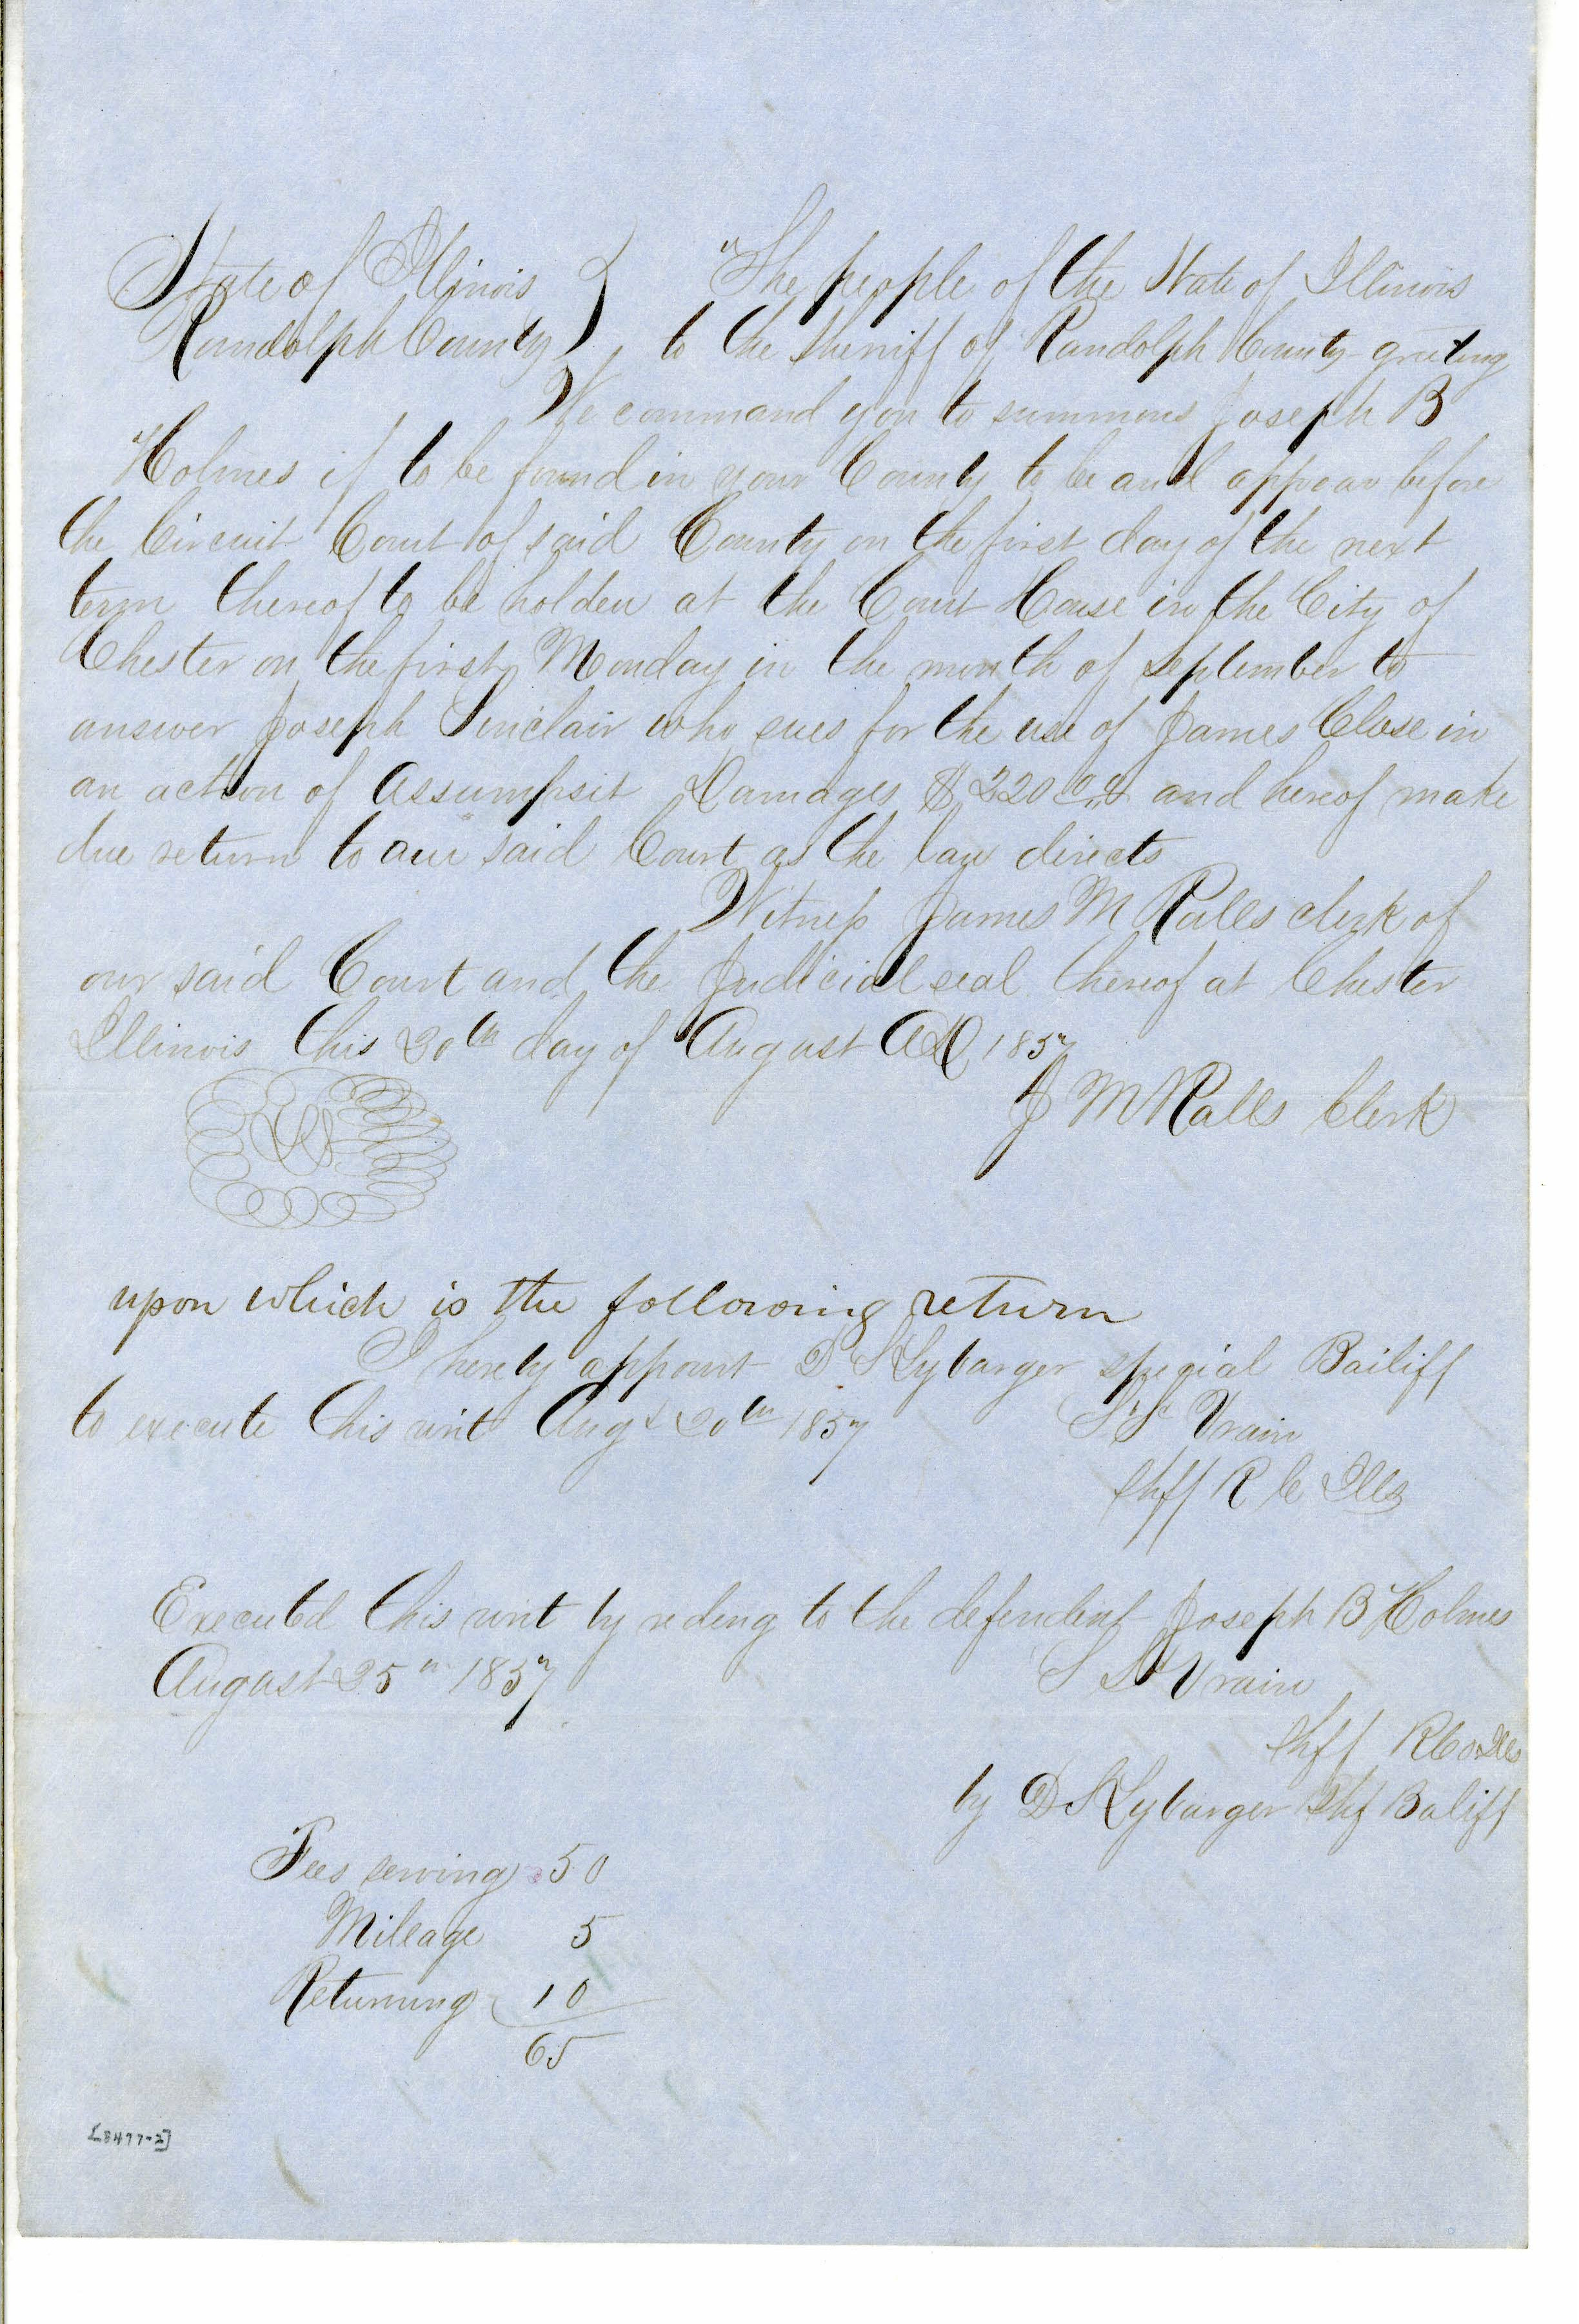 State of Illinois } The people of the State of Illinois
Randolph County } to the Sheriff of Randolph County greeting
We command you to summons Joseph B
Holmes if to be found in your County to be and appear before
the Circuit Court of said County on the first day of the next
term thereof to be holden at the Court House in the City of
Chester on the first Monday in the month of September to
answer Joseph Sinclair who sues for the use of James Close in
an action of Assumpsit Damages $220 00 and hereof make
due return to our said Court as the law directs
Witness James M Ralls clerk of
our said Court and the Judicial seal thereof at Chester
Illinois this 20th day of August AD 1857
J M Ralls Clerk
LS
upon which is the following return
I hereby appoint D S Lybarger special Bailiff
to execute this writ Augt 20th 1857 S St Vrain
Shff R C Ills
Executed this writ by reding to the defendent Joseph B Holmes
August 25th 1857 S St Vrain
Shff R Co Ills
by D S Lybarger Baliff
Fees serving 50
Mileage 5
Returning 10
65
[8477-2]